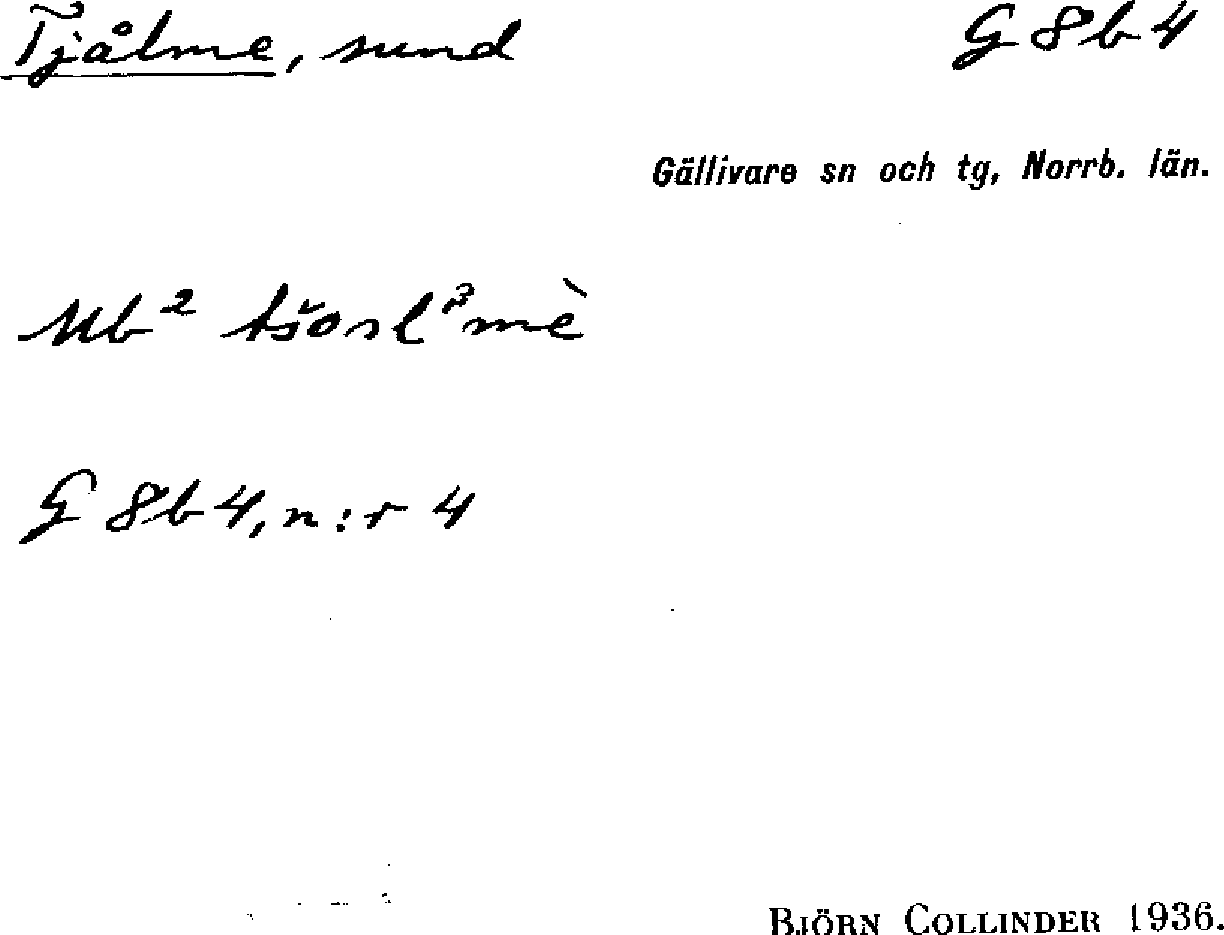 Tjålme, sund G 8 b 4
Gällivare sn och tg, Norrb. län.
Mb² tšoɑl³mè
G 8 b 4, n:r 4
BJÖRN COLLINDER 1936.